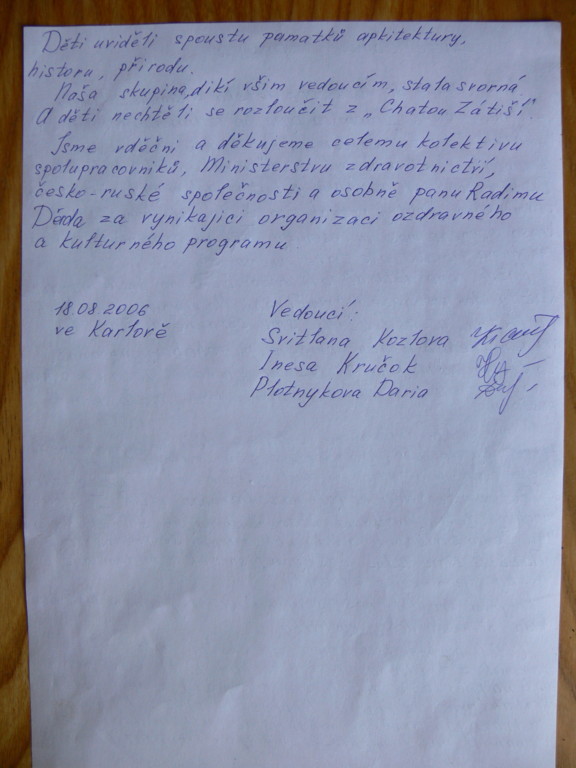 Děti uviděli spoustu památků apkitektury,
historu, přírodu.
Naša skupina, dikí všim vedoucím, stala svorná
A děti nechtěli se rozloučit z „Chatou Zátiší".
Jsme vděčni a děkujeme celemu kolektivu
spolupracovníků, Ministerstvu zdravotnictví,
česko-ruské společnosti a osobně panu Radimu
Děda za vynikajici organizaci ozdravného
a kulturného programu
18.08.2006
ve Karlově
Vedoucí:
Svitlana Kozlova
Inesa Kručok
Plotnykova Daria